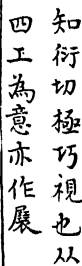 知衍切極巧視也从
四工為意亦作展